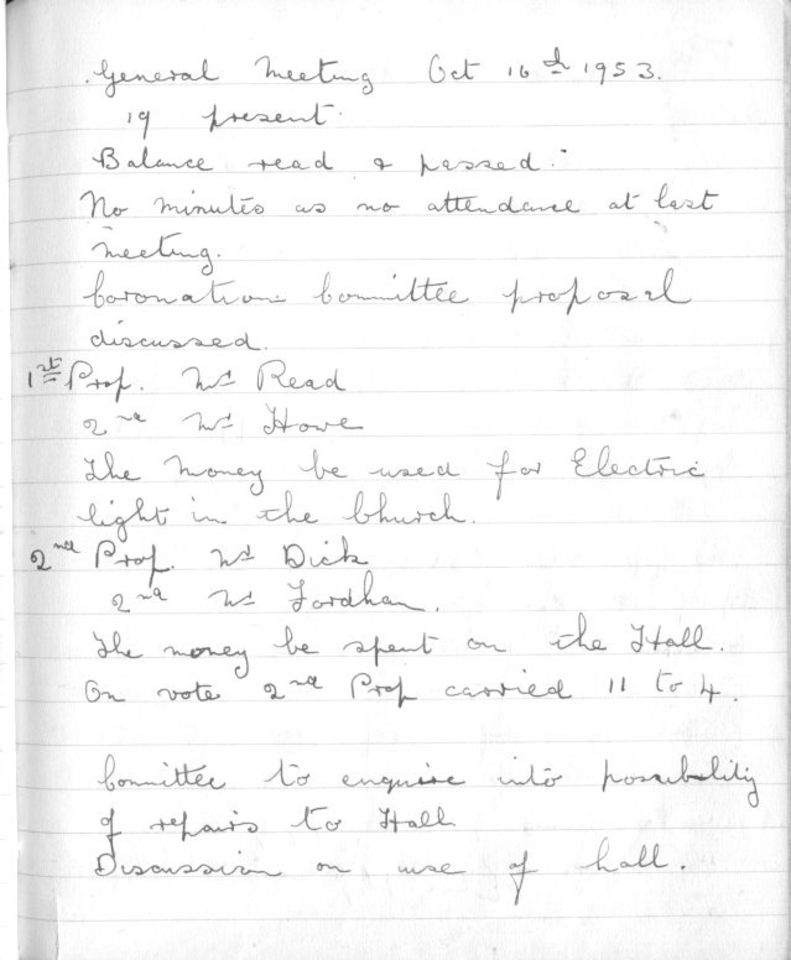 General Meeting Oct 16th 1953.
19 present.
Balance read & passed.
No minutes as no attendance at last
meeting.
Coronation Committee proposal
discussed.
1st Prop. Read
2nd Howe
The money be used for Electric
light in the Church.
2nd Prop. Dick
2nd Fordham.
The money be spent on the Hall.
On vote 2nd Prop carried 11 to 4.
Committee to enquire into possibility
of repairs to Hall
Discussion on use of hall.